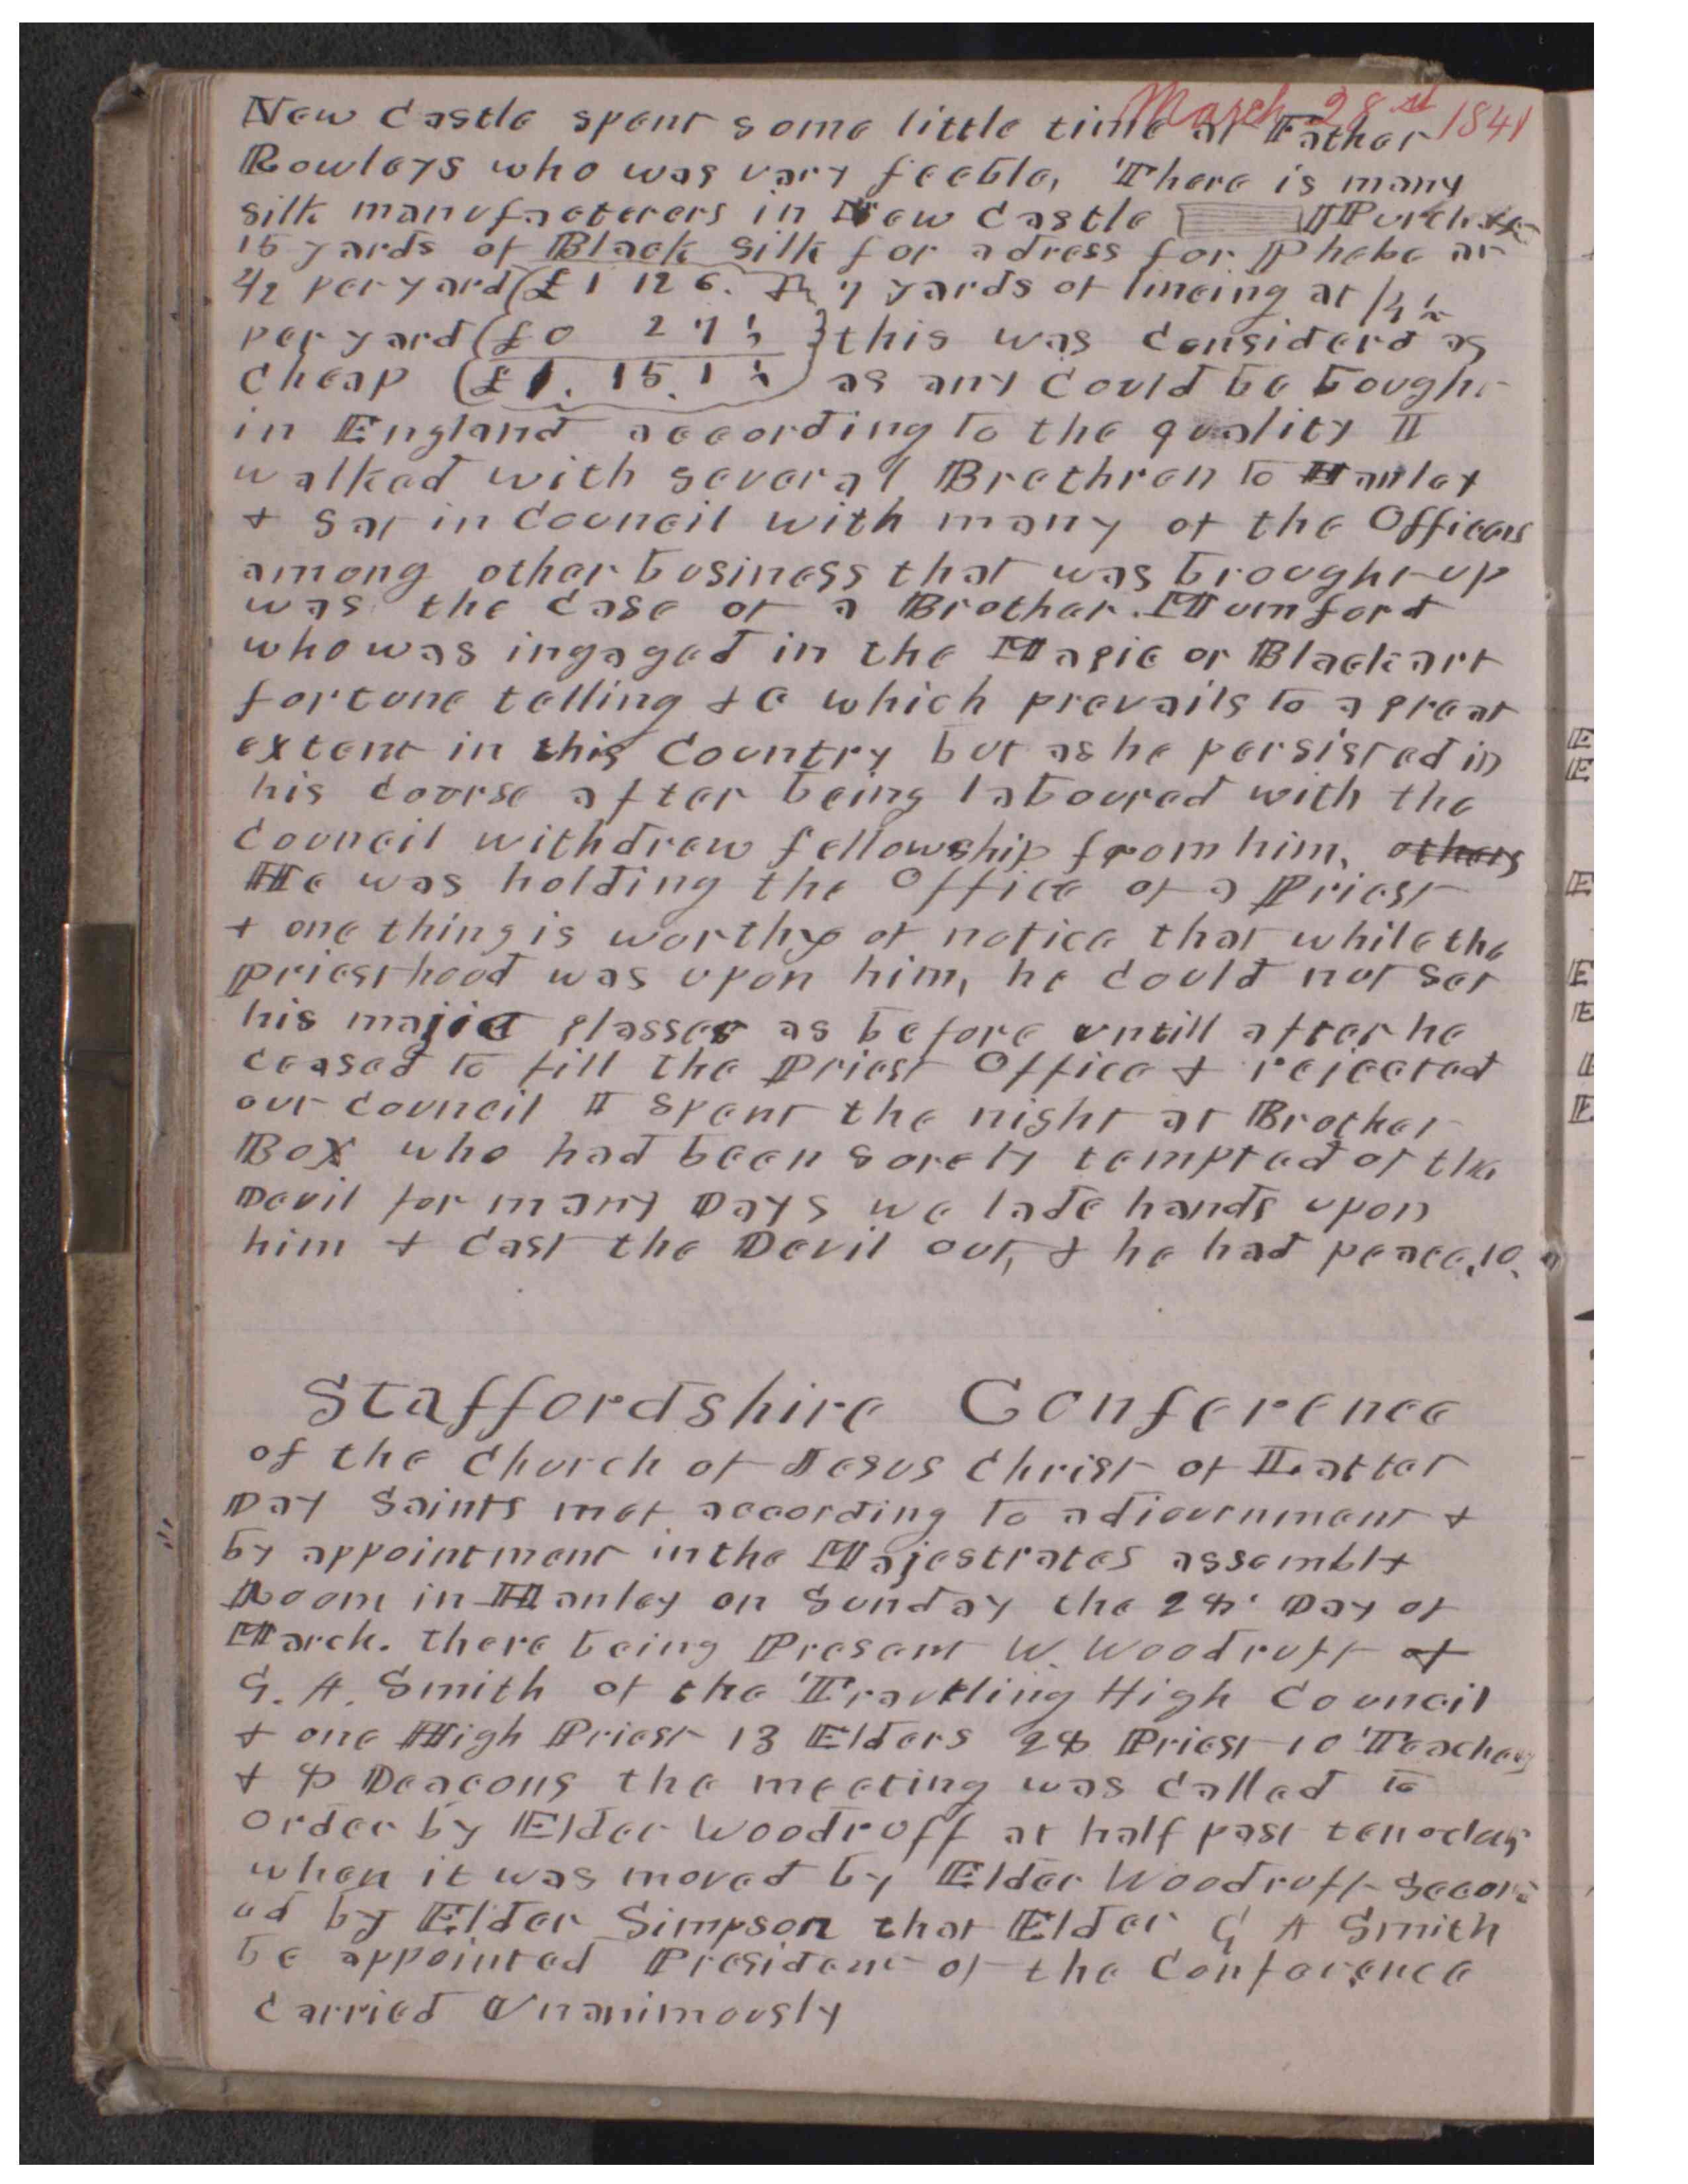 March 28st 1841
New Castle spent some little time at Father
Rowleys who was vary feeble, There is many
silk manufacterers in New Castle I Purchased
15 yards of Black silk for a dress for Phebe at
2/2 per yard (£1 12 6. 7 yards of lineing at /4½
per yard (£0 2 7½ } this was considerd as
cheap (£1. 15. 1½ ) as any could be bought
in England according to the quality I
walked with several Brethren to Hanley
& sat in Council with many of the Officers
among other business that was brought up
was the case of a Brother. Mumford
who was ingaged in the Magic or Black art
fortune telling &c which prevails to a great
extent in this Country but as he persisted in
his course after being laboured with the
Council withdrew fellowship from him, others
He was holding the Office of a Priest
& one thing is worthy of notice that while the
priesthood was upon him, he could not see
his majic glasses as before untill after he
ceased to fill the Priest Office & rejected
our council I spent the night at Brother
Box who had been sorely tempted of the
Devil for many Days we lade hands upon
him & cast the Devil out, & he had peace, 10.
Staffordshire Conference
of the Church of Jesus Christ of Latter
Day Saints met according to adjournment &
by appointment in the Majestrates assembly
Room in Hanley on Sunday the 28. Day of
March. there being Present W. Woodruff &
G. A. Smith of the Travtling High Council
& one High Priest 13 Elders 28 Priest 10 Teachers
& 8 Deacons the meeting was called to
order by Elder Woodruff at half past ten oclock
when it was moved by Elder Woodruff Second
ed by Elder Simpson that Elder G A Smith
be appointed President of the Conference
carried Unanimously